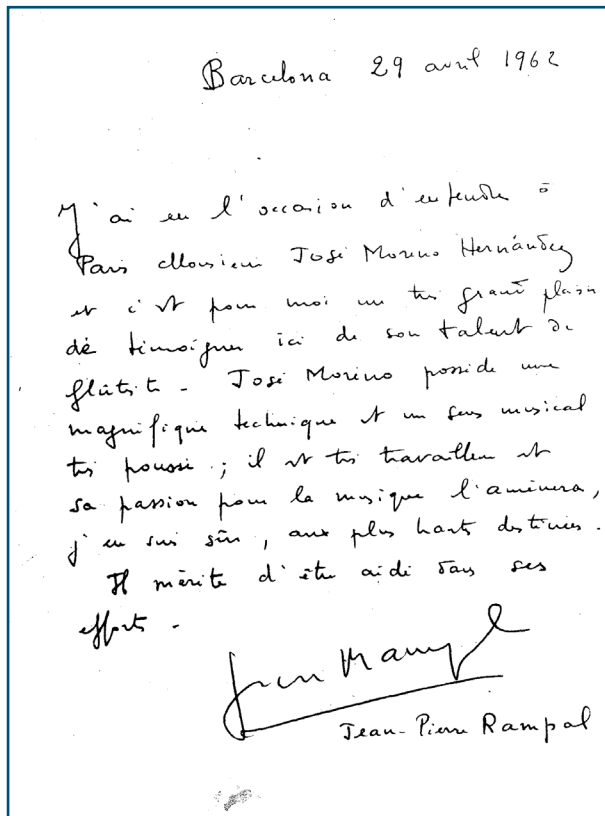 Barcelona 29 avril 1962
J'ai eu l'occasion d'entendre à
Paris Monsieur José Moreno Hernández
et c'est pour moi un très grand plaisir
de témoigner ici de son talent de
flûtiste - José Moreno possède une
magnifique technique et un sens musical
très poussé ; il est très travailleur et
sa passion pour la musique l'amènera,
j'en suis sûr, aux plus hauts destinées.
Il mérite d'être aidé dans ses
efforts -
Jean-Pierre Rampal